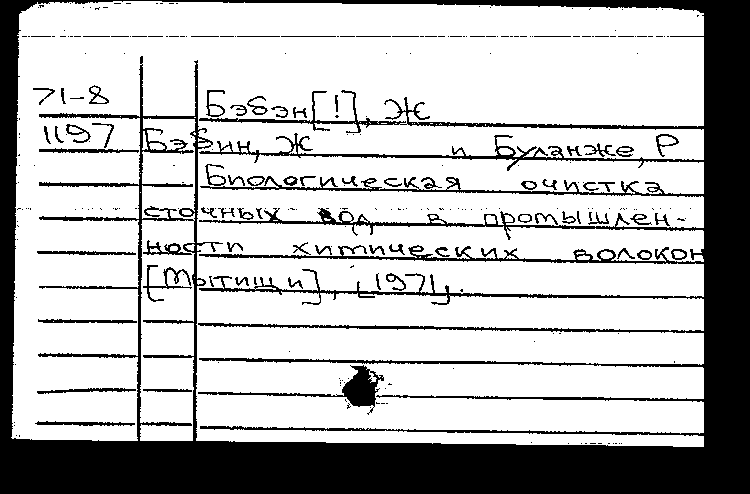 71-8 Бэбэн[!], Ж
1197 Бэбин, Ж и Буланже, Р
Биологическая очистка
сточных вод в промышлен-
ности химических волокон
[Мытищи], [1971].